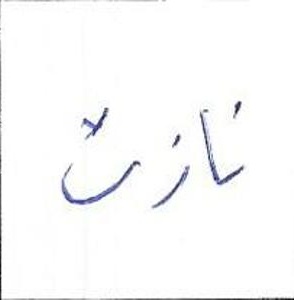 نازش